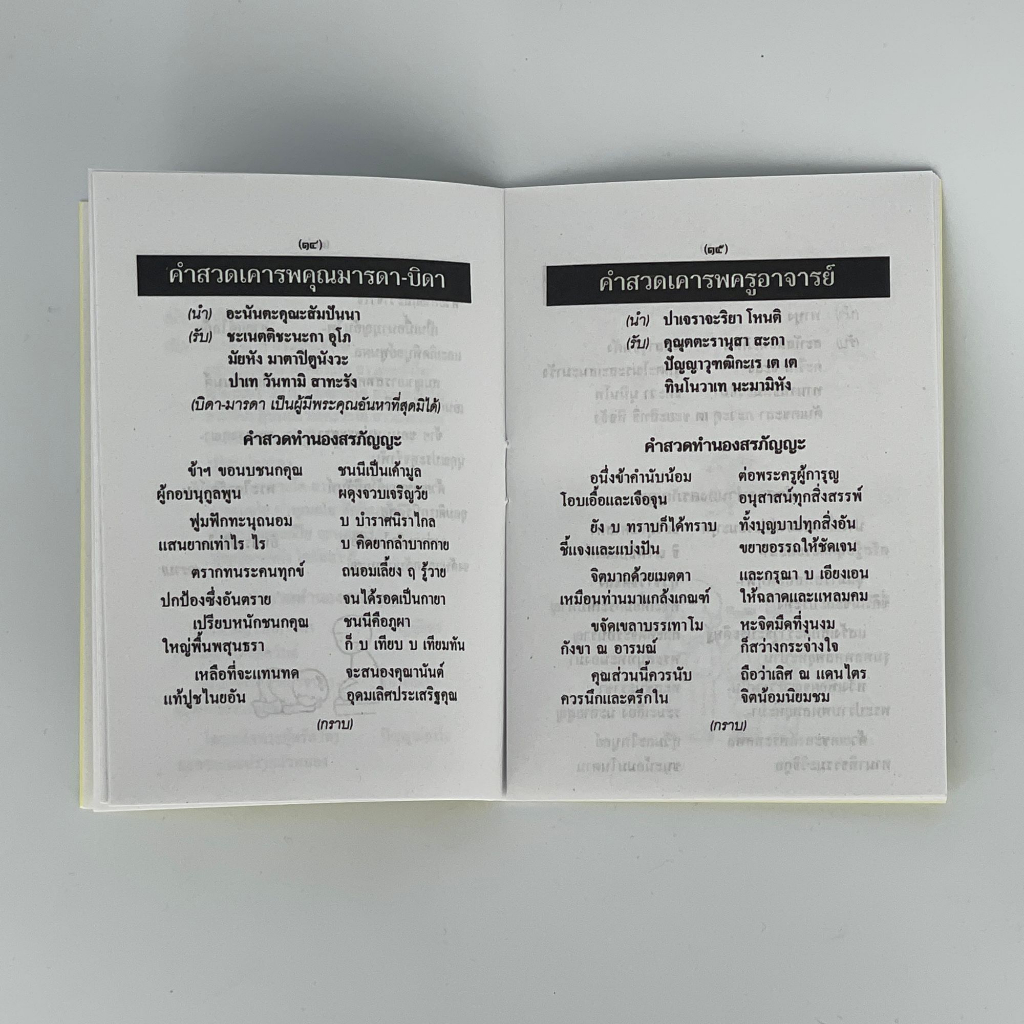 (๑๔)
คำสวดเคารพคุณมารดา-บิดา
(นำ) อะนันตะคุณะสัมปันนา
(รับ) ชะเนตติชะนะกา อุโภ
มัยหัง มาตาปิตูนังวะ
ปาเท วันทามิ สาทะรัง
(บิดา-มารดา เป็นผู้มีพระคุณอันหาที่สุดมิได้)
คำสวดทำนองสรภัญญะ
ข้าฯ ขอนบชนกคุณ ชนนีเป็นเค้ามูล
ผู้กอบนุกูลพูน ผดุงจวบเจริญวัย
ฟูมฟักทะนุถนอม บ บำราศนิราไกล
แสนยากเท่าไร ไร บ คิดยากลำบากกาย
ตรากทนระคนทุกข์ ถนอมเลี้ยง ฤ รู้วาย
ปกป้องซึ่งอันตราย จนได้รอดเป็นกายา
เปรียบหนักชนกคุณ ชนนีคือภูผา
ใหญ่พื้นพสุนธรา ก็ บ เทียบ บ เทียมทัน
เหลือที่จะแทนทด จะสนองคุณานันต์
แท้ปูชไนยอัน อุดมเลิศประเสริฐคุณ
(กราบ)
(๑๕)
คำสวดเคารพครูอาจารย์
(นำ) ปาเจราจะริยา โหนติ
(รับ) คุณุตตะรานุสา สะกา
ปัญญาวุฑฒิกะเร เต เต
ทินโนวาเท นะมามิหัง
คำสวดทำนองสรภัญญะ
อนึ่งข้าคำนับน้อม ต่อพระครูผู้การุญ
โอบเอื้อและเจือจุน อนุสาสน์ทุกสิ่งสรรพ์
ยัง บ ทราบก็ได้ทราบ ทั้งบุญบาปทุกสิ่งอัน
ชี้แจงและแบ่งปัน ขยายอรรถให้ชัดเจน
จิตมากด้วยเมตตา และกรุณา บ เอียงเอน
เหมือนท่านมาแกล้งเกณฑ์ ให้ฉลาดและแหลมคม
ขจัดเขลาบรรเทาโม หะจิตมืดที่งุนงม
กังขา ณ อารมณ์ ก็สว่างกระจ่างใจ
คุณส่วนนี้ควรนับ ถือว่าเลิศ ณ แดนไตร
ควรนึกและตรึกใน จิตน้อมนิยมชม
(กราบ)